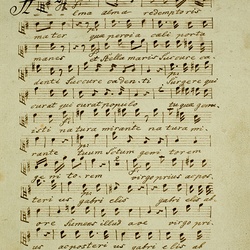 Alma redemptoris
mater quae pervia caeli porta
manes et stella maris succure ca
denti succure cadenti surgere qui
curat qui curat populo tu quae genu
isti natura mirante natura mi
rante tuum sctum genitorem
genitorem virgo prius ac pos
terius gabrielis gabrielis ab
ore sumens illud ave virgo pri
us ac posterius gabrielis ab